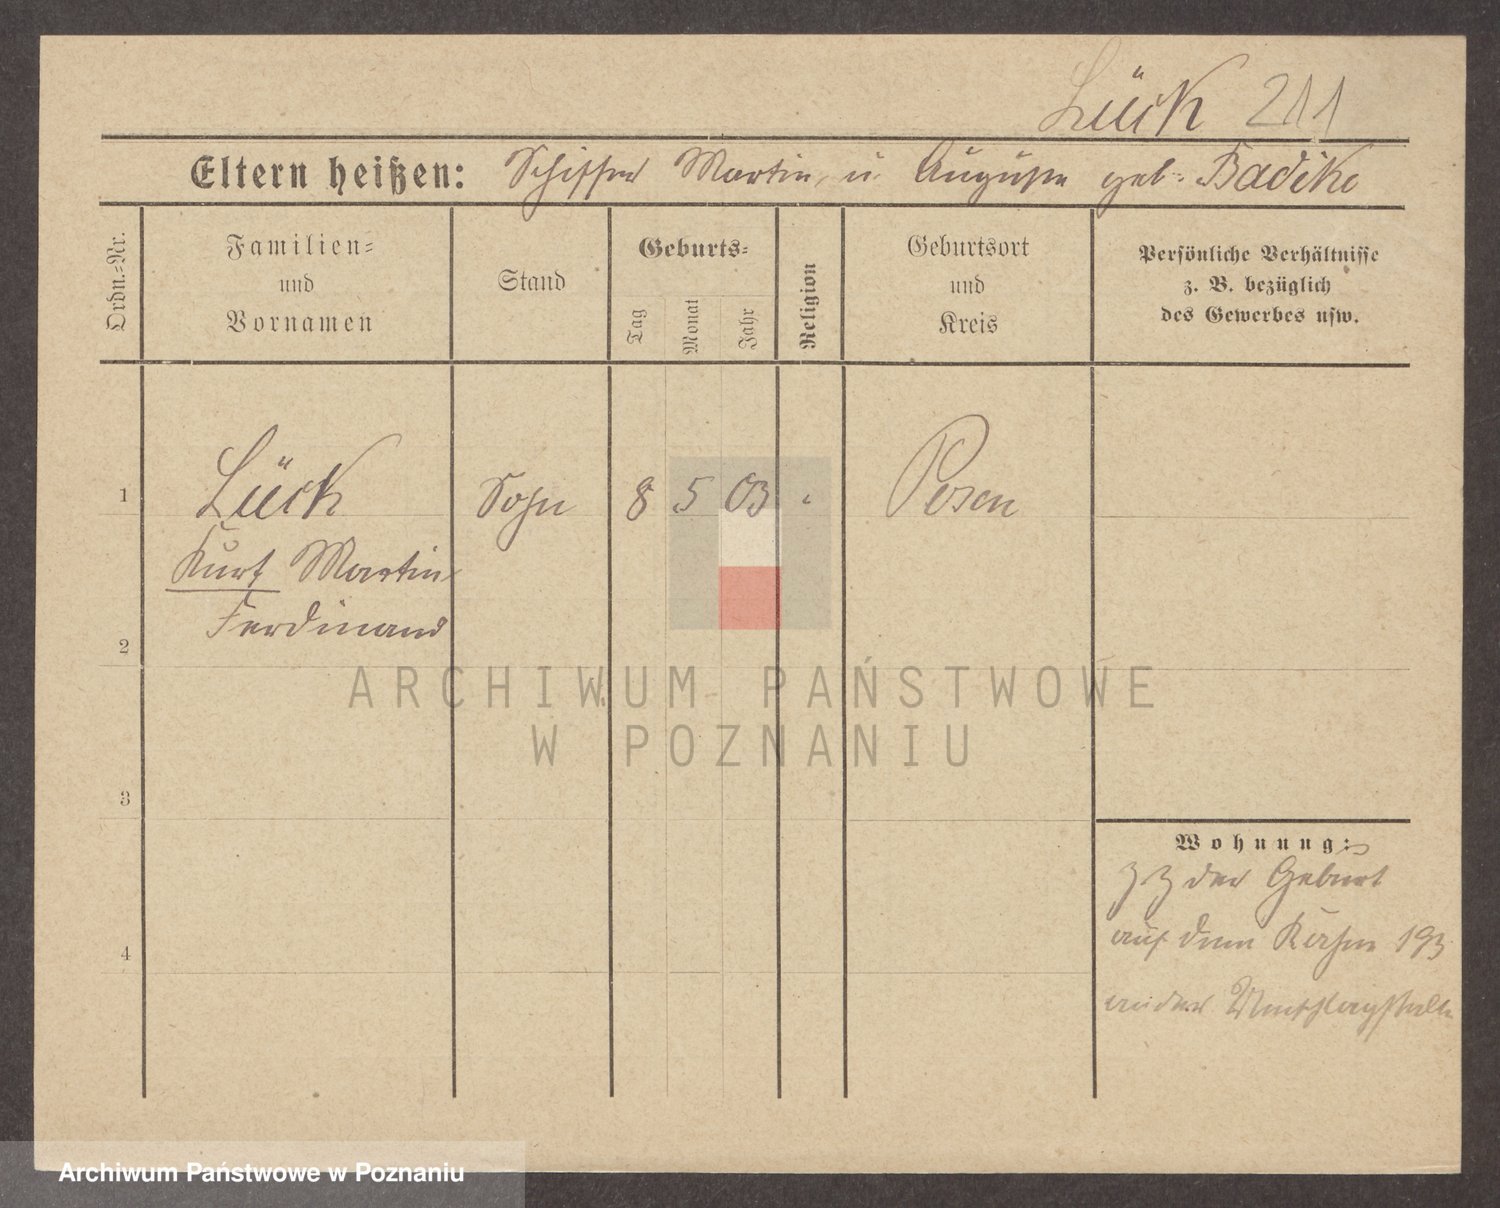 Lück 211
Eltern heißen: Schiffer Martin, u. Auguste geb. Badike
Ordn.-Nr.
Familien-
und
Vornamen
Stand
Geburts-
Tag
Monat
Jahr
Religion
Geburtsort
und
Kreis
Persönliche Verhältnisse
z. B. bezüglich
des Gewerbes usw.
1
Lück
Sohn
8
5
03
Posen
Kurt Martin
Ferdinand
2
3
4
Wohnung:
z Z der Geburt
auf dem Kahne 193
an der Umschlagstelle
ARCHIWUM PAŃSTWOWE
W POZNANIU
Archiwum Państwowe w Poznaniu